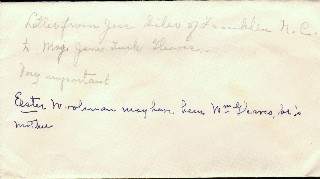 Letter from Jess Siler of Franklin N. C.
to Mrs. James Tusk Gleaves.
Very important
Eester Woolman may have been Wm Gleaves, Sr's
mother